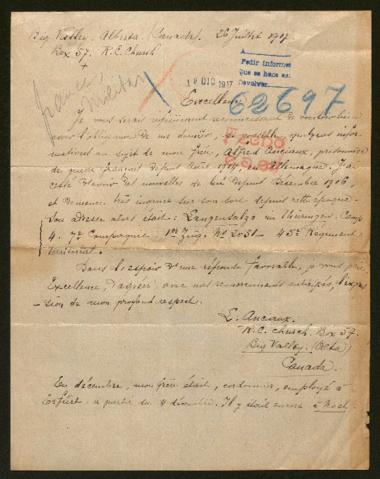 Big Valley, Alberta, (Canada). 26 Juillet 1917
Box 57. R.C. Church
+
Pedir informes
que se hace así
Devolver
18 DIC 1917
France
Militar
62697
Excellence
Je vous serais infiniment reconnaissant de
avoir l'obligeance de me donner, si possible, quelques infor-
mations au sujet de mon frère, Alfred Anciaux, prisonnier
de guerre français depuis Août 1914, en Allemagne. J'ai
cessé d'avoir des nouvelles de lui depuis Décembre 1916,
et demeure très inquiet sur son sort depuis cette époque.
Son adresse alors était: Langensalza in Thüringen, Camp
4. 7e Compagnie 1er Zug. No 2051 - 45e Régiment
territorial.
Dans l'espoir d'une réponse favorable, je vous prie,
Excellence, d'agréer, avec mes remerciements anticipés, l'expres-
sion de mon profond respect.
L. Anciaux.
R.C. Church. Box 57.
Big Valley. (Alta)
Canada.
En décembre, mon frère était, cordonnier, employé à
Erfurt à partir du 4 décembre. Il y était encore à Noël.